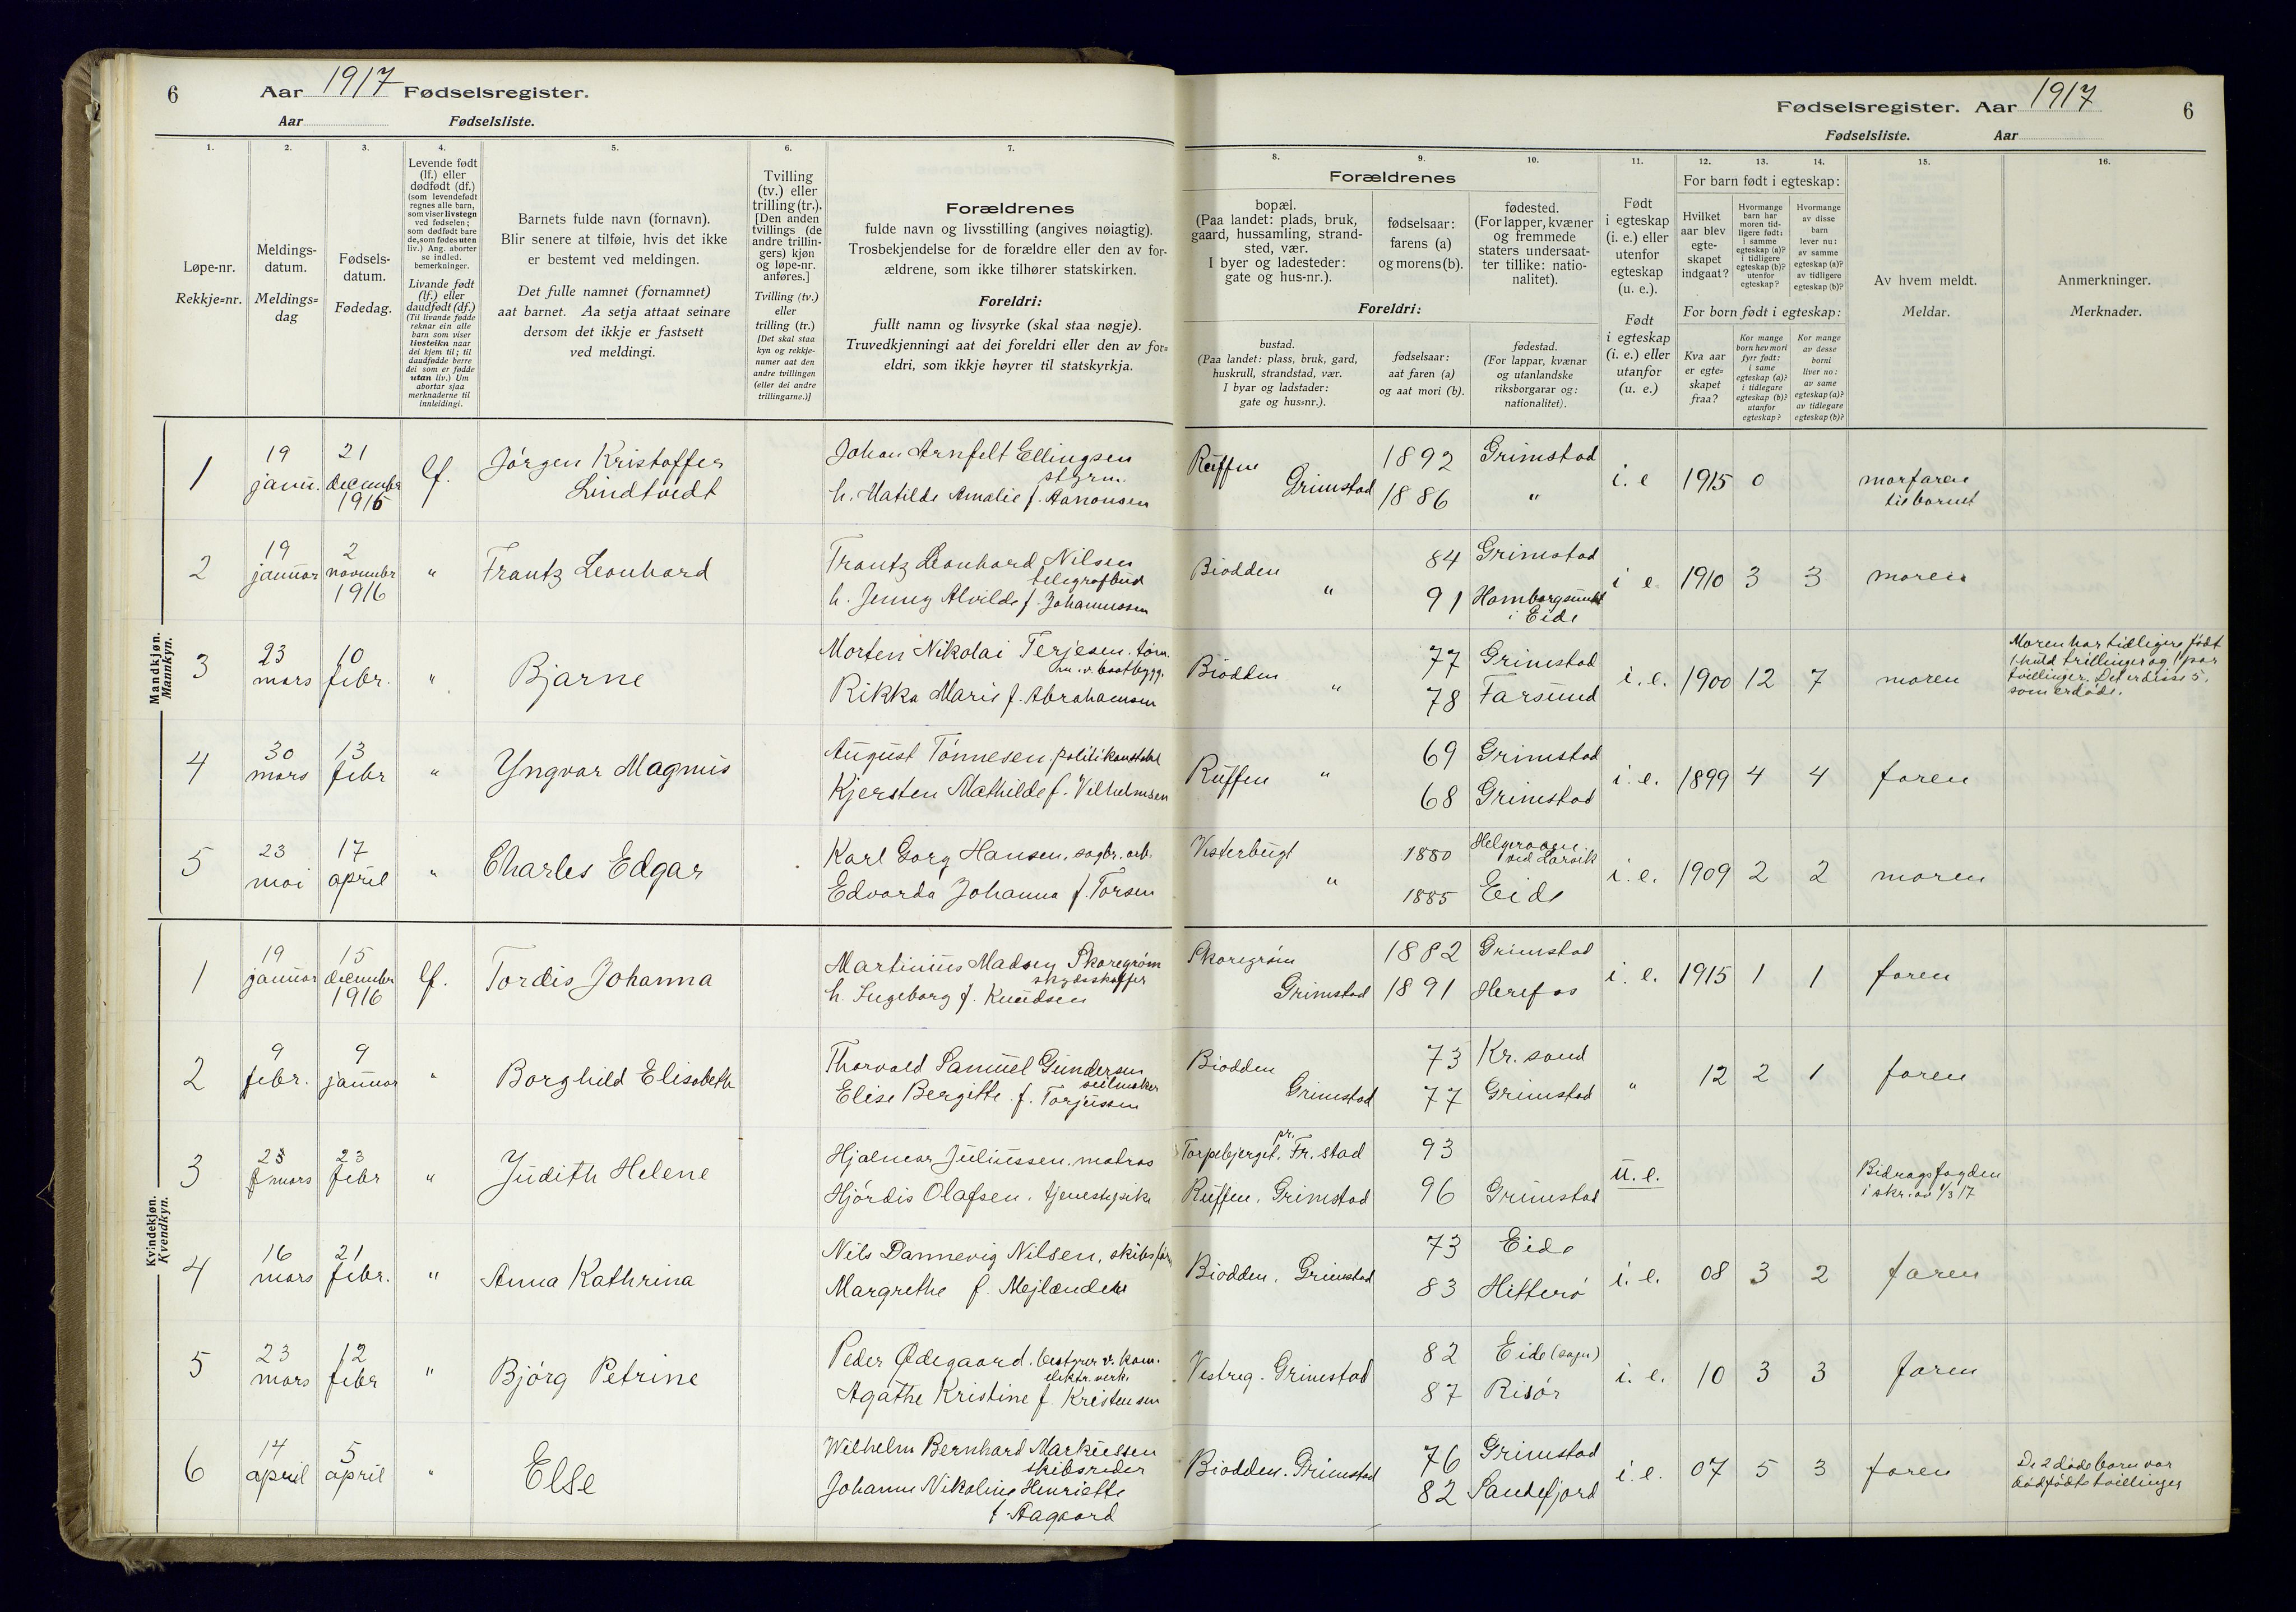 6 Aar 1917 Fødselsregister.
Aar Fødselsliste.
Fødselsregister. Aar 1917 6
Fødselsliste. Aar
1. 2. 3. 4. 5. 6. 7.
Løpe-nr.
Rekkje=nr.
Meldings-
datum.
Meldings=
dag
Fødsels-
datum.
Fødedag.
Levende født
(lf.) eller
dødfødt (df.)
(som levendefødt
regnes alle barn,
som viser livstegn
ved fødselen;
som dødfødt bare
de, som fødes uten
liv.) Ang. aborter
se indled.
bemerkninger.
Livande født
(lf.) eller
daudfødt (df.)
(Til livande fødde
reknar ein alle
barn som viser
livsteikn naar
dei kjem til; til
daudfødde berre
dei som er fødde
utan liv.) Um
abortar sjaa
merknaderne til
innleidingi.
Barnets fulde navn (fornavn).
Blir senere at tilføie, hvis det ikke
er bestemt ved meldingen.
Det fulle namnet (fornamnet)
aat barnet. Aa setja attaat seinare
dersom det ikkje er fastsett
ved meldingi.
Tvilling
(tv.) eller
trilling (tr.).
[Den anden
tvillings (de
andre trillin-
gers) kjøn
og løpe-nr.
anføres.]
Tvilling (tv.)
eller
trilling (tr.)
[Det skal staa
kyn og rekkje-
numer aat den
andre tvillingen
(eller dei andre
trillingarne.)]
Forældrenes
fulde navn og livsstilling (angives nøiagtig).
Trosbekjendelse for de forældre eller den av for-
ældrene, som ikke tilhører statskirken.
Foreldri:
fullt namn og livsyrke (skal staa nøgje).
Truvedkjenningi aat dei foreldri eller den av for=
eldri, som ikkje høyrer til statskyrkja.
8. 9. 10. 11. 12. 13. 14. 15. 16.
Forældrenes
bopæl.
(Paa landet: plads, bruk,
gaard, hussamling, strand-
sted, vær.
I byer og ladesteder:
gate og hus-nr.).
fødselsaar:
farens (a)
og morens (b).
fødested.
(For lapper, kvæner
og fremmede
staters undersaat-
ter tillike: natio-
nalitet).
Foreldri:
bustad.
(Paa landet: plass, bruk, gard,
huskrull, strandstad, vær.
I byar og ladstader:
gate og hus=nr.).
fødselsaar:
aat faren (a)
og aat mori (b).
fødestad.
(For lappar, kvænar
og utanlandske
riksborgarar og:
nationalitet).
Født
i egteskap
(i. e.) eller
utenfor
egteskap
(u. e.).
Født
i egteskap
(i. e.) eller
utanfor
(u. e.)
For barn født i egteskap:
Hvilket
aar blev
egte-
skapet
indgaat?
Hvormange
barn har
moren tid-
ligere født:
i samme
egteskap (a)?
i tidligere
egteskap (b)?
utenfor
egteskap?
Hvormange
av disse
barn
lever nu:
av samme
egteskap (a)?
av tidligere
egteskap (b)?
For born født i egteskap:
Kva aar
er egte=
skapet
fraa?
Kor mange
born hev mori
fyrr født:
i same
egteskap (a)?
i tidlegare
egteskap (b)?
utanfor
egteskap?
Kor mange
av desse
borni
liver no:
av same
egteskap (a)?
av tidlegare
egteskap (b)?
Av hvem meldt.
Meldar.
Anmerkninger.
Merknader.
Mandkjøn.
Mannkyn.
1 19 januar. 21 december 1916 lf. Jørgen Kristoffer
Lindtvedt
Johan Arnfelt Ellingsen
styrm.
h. Matilde Amalie f. Aanonsen
Røffen
Grimstad
1892 Grimstad
1886 "
i. e 1915 0
morfaren
til barnet
2 19 januar 2 november 1916 " Frantz Leonhard
Frantz Leonhard Nilsen
telegrafbud
h. Jenny Alvilde f. Johannessen
Biodden
"
84 Grimstad
91 Homborgsund
i Eide
i e. 1910 3 3 moren
3 23 mars 10 febr. " Bjarne
Morten Nikolai Terjesen. tøm.
m. v. baatbygg.
Rikka Marie f. Abrahamsen
Biodden
"
77 Grimstad
78 Farsund
i. e. 1900 12 7 moren
Moren har tidligere født
1 kuld trillinger og 1 par
tvillinger. Det er disse 5.
som er døde.
4 30 mars 13 febr " Yngvar Magnus
August Tønnesen, politikonstabel
Kjersten Mathilde f. Vilhelmsen
Ruffen "
69 Grimstad
68 Grimstad
i. e. 1899 4 4 faren
5 23 mai 17 april " Charles Edgar
Karl Georg Hansen, sagbr. arb.
Edvarda Johanna f. Torsen
Vesterbugt
"
1880 Helgeroaen
ved Larvik
1885 Eide
i. e. 1909 2 2 moren
Kvindekjøn.
Kvendkyn.
1 19 januar 15 december 1916 lf. Tordis Johanna
Martinius Madsen Skaregrøm
skydsskaffer
h. Ingeborg f. Knudsen
Skaregrøm
Grimstad
1882 Grimstad
1891 Herefos
i. e. 1915 1 1 faren
2 9 febr. 9 januar " Borghild Elisabeth
Thorvald Samuel Gundersen
seilmaker
Elise Bergitte. f. Torjussen
Biodden
Grimstad
73 Kr. sand
77 Grimstad
" 12 2 1 faren
3 23 mars 23 febr " Judith Helene
Hjalmar Juliussen. matros
Hjørdis Olafsen. tjenestepike
Torpebjerget. pr. Fr. stad
Ruffen. Grimstad
93
96 Grimstad
u. e.
Bidragsfogden
i skr. av 1/3 17
4 16 mars 21 febr. " Anna Kathrina
Nils Dannevig Nilsen, skibsfør
Margrethe f. Mejlænder
Biodden. Grimstad
73 Eide
83 Hitterø
i. e. 08 3 2 faren
5 23 mars 12 febr " Bjørg Petrine
Peder Ødegaard. bestyrer v. kom.
elektr. verk.
Agathe Kristine f. Kristensen
Vestreg. Grimstad
82 Eide (sogn)
87 Risør
i. e. 10 3 3 faren
6 14 april 5 april " Else
Wilhelm Bernhard Markussen
skibsreder
Johanne Nikoline Henriette
f. Aagaard
Biodden. Grimstad
76 Grimstad
82 Sandefjord
i. e. 07 5 3 faren
De 2 døde barn var
dødfødte tvillinger